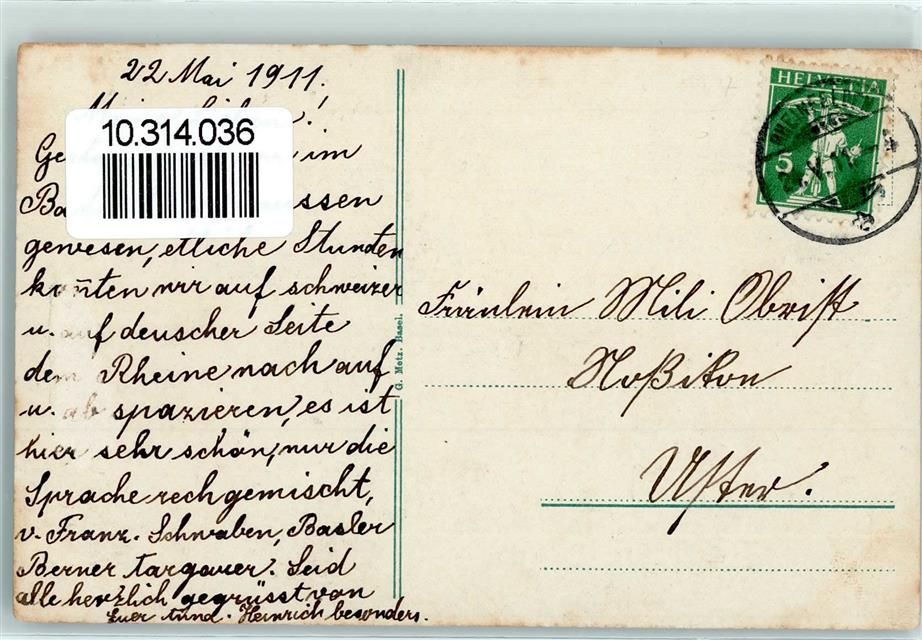 22 Mai 1911.
!
10.314.036
Ge im
Ba ssen
gewesen, etliche Stunden
kon̄ten wir auf schweizer
u. auf deuscher Seite
dem Rheine nach auf
u. ab spazieren, es ist
hier sehr schön, nur die
Sprache rech gemischt,
v. Franz. Schwaben, Basler
Berner targauer. Seid
alle herzlich gegrüsst von
Euer Heinrich besonders.
G. Metz. Basel.
HELVETIA
5
RHEINFELDEN
Fräulein Mili Obrist
Noßikon
Uster.